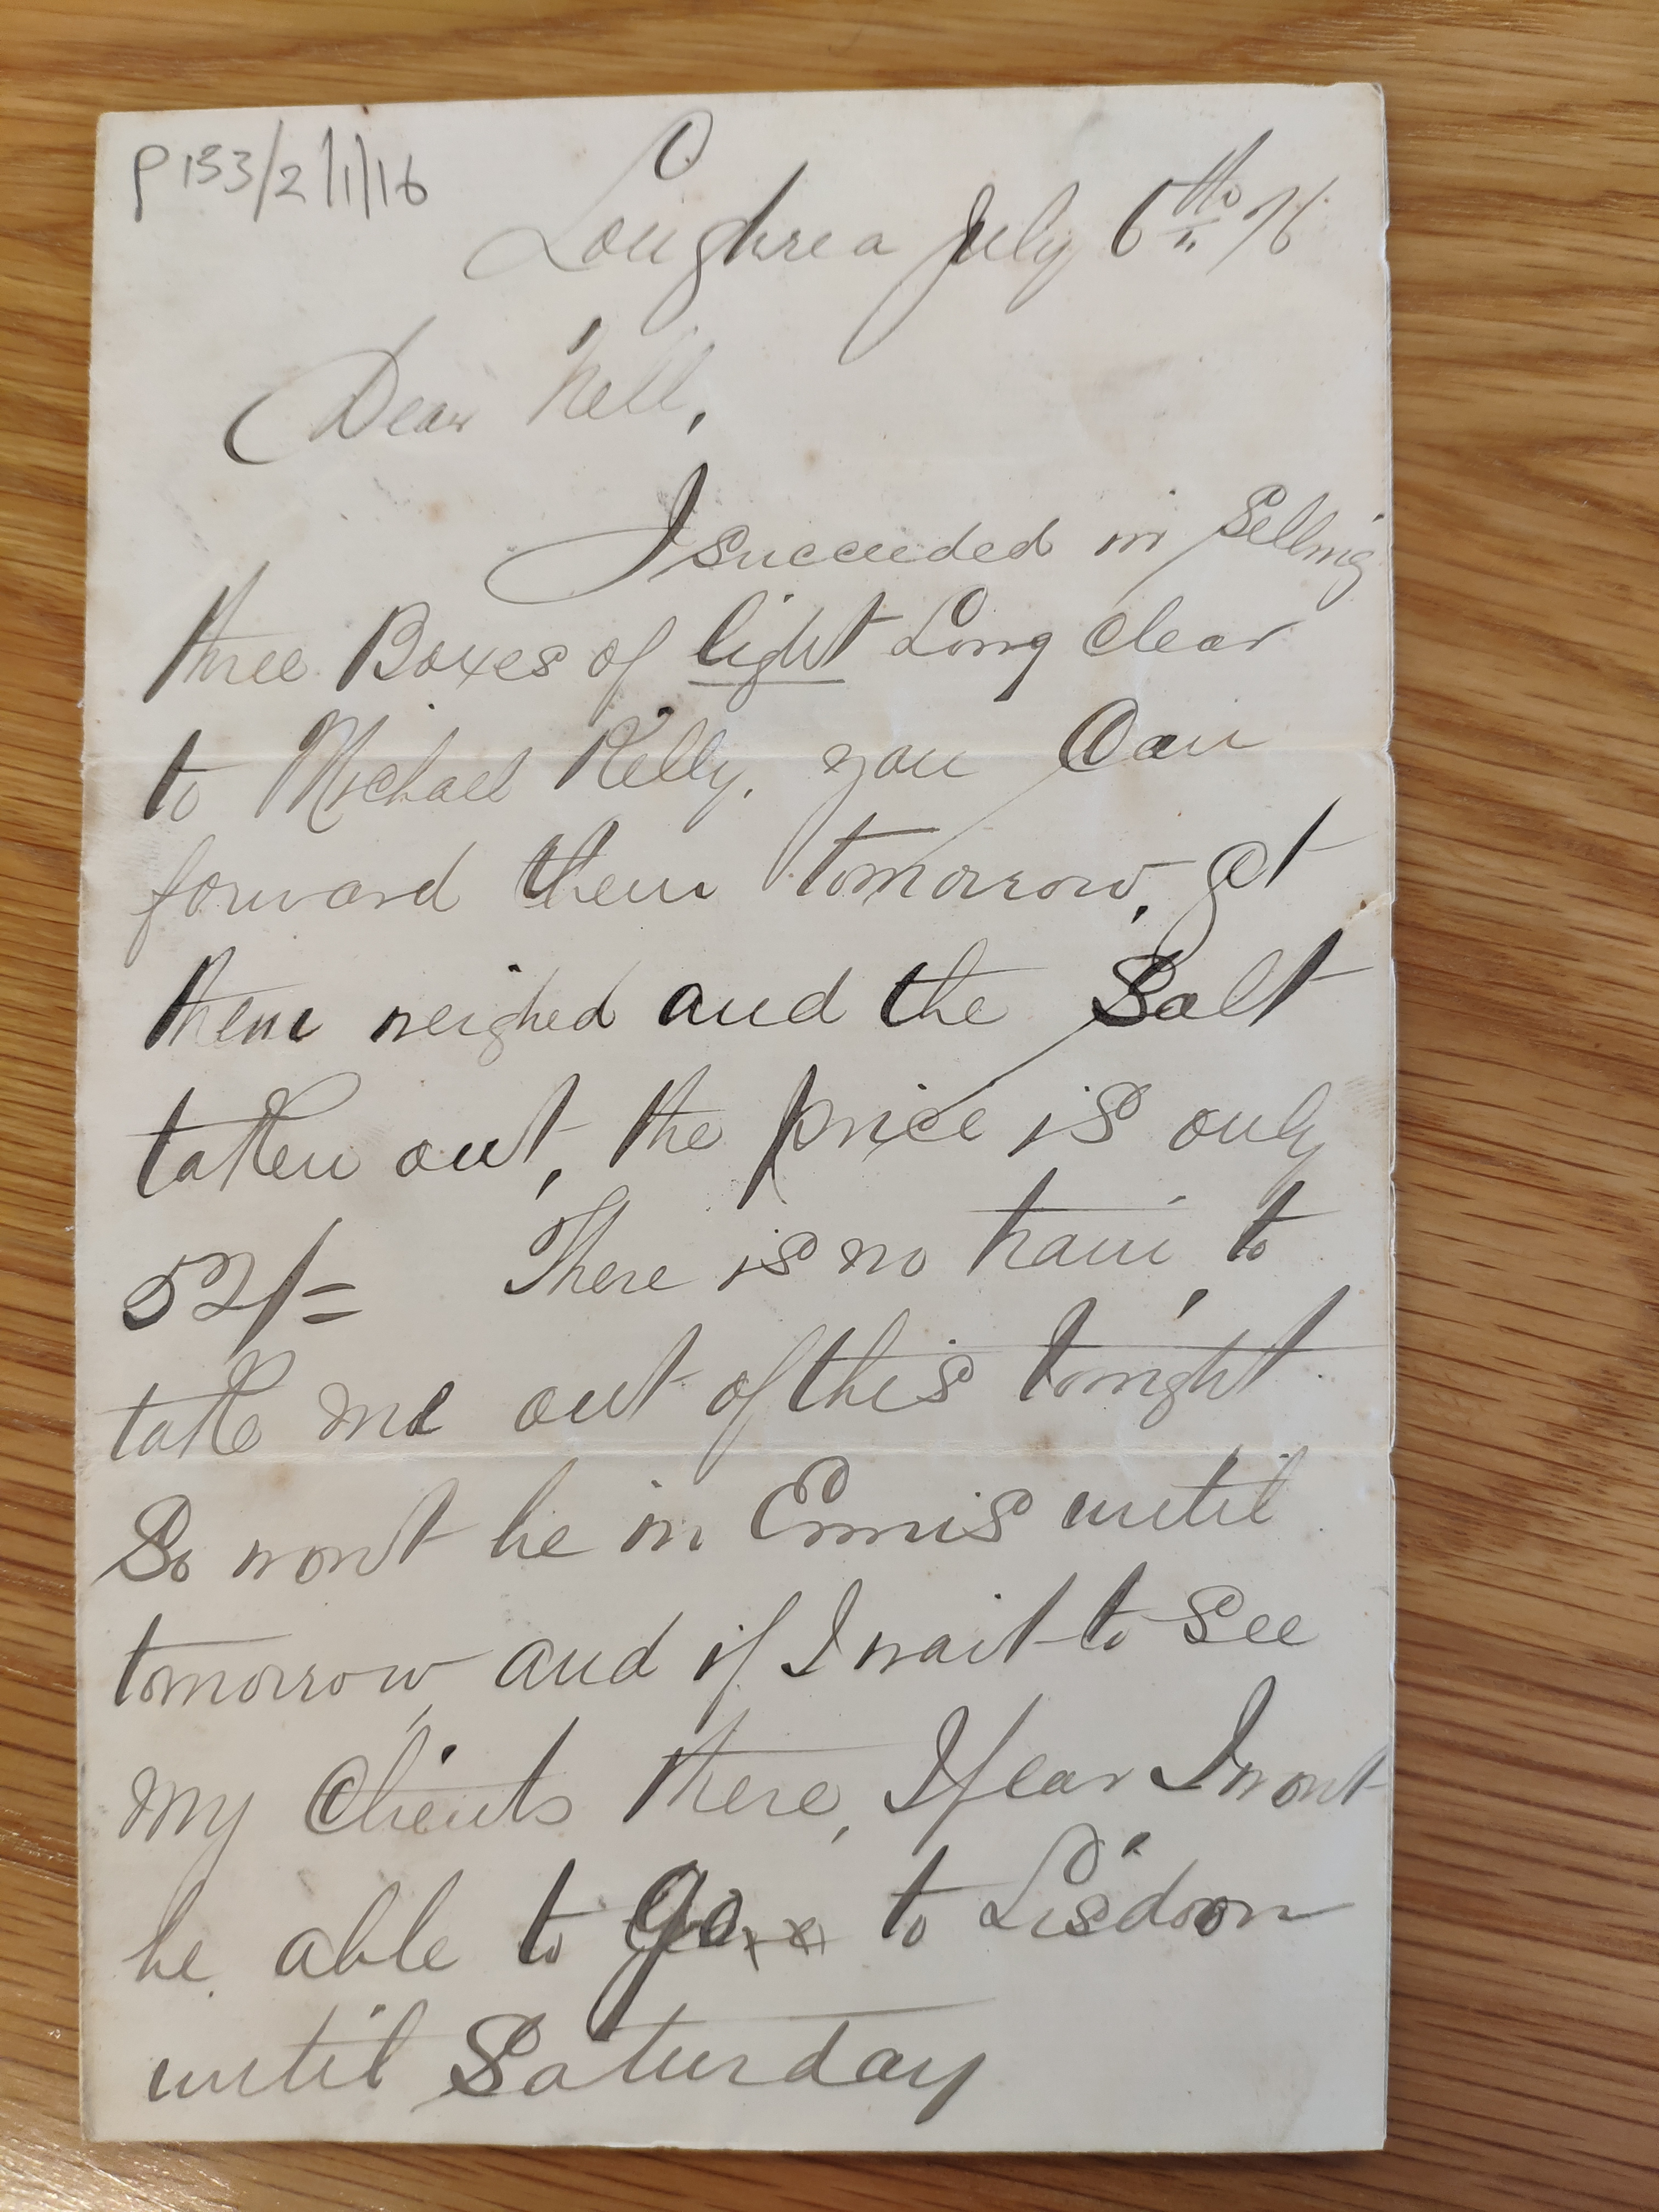 P133/2/1/16
Loughrea July 6th /76
Dear Nell,
I succeeded in selling
three Boxes of light Long Clear
to Michael Kelly. you Can
forward them tomorrow, get
them weighed and the Salt
taken out, the price is only
52/=  There is no train, to
take me out of this tonight
So wont be in Ennis until
tomorrow, and if I wait to See
my Clients there, I fear I wont
be able to go to Lisdoon
until Saturday